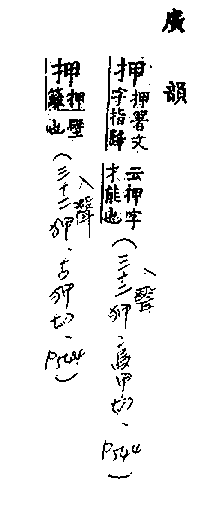 廣韻
押押署文字指歸云押字才能也（入聲三十二狎、烏甲切、P544）
押押壁也（入聲三十二狎、古狎切、P544）